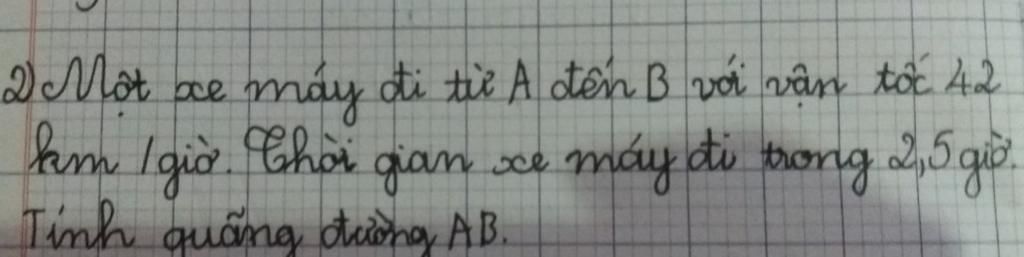 2) Một xe máy đi từ A đến B với vận tốc 42
km/giờ. Thời gian xe máy đi trong 2,5 giờ.
Tính quãng đường AB.